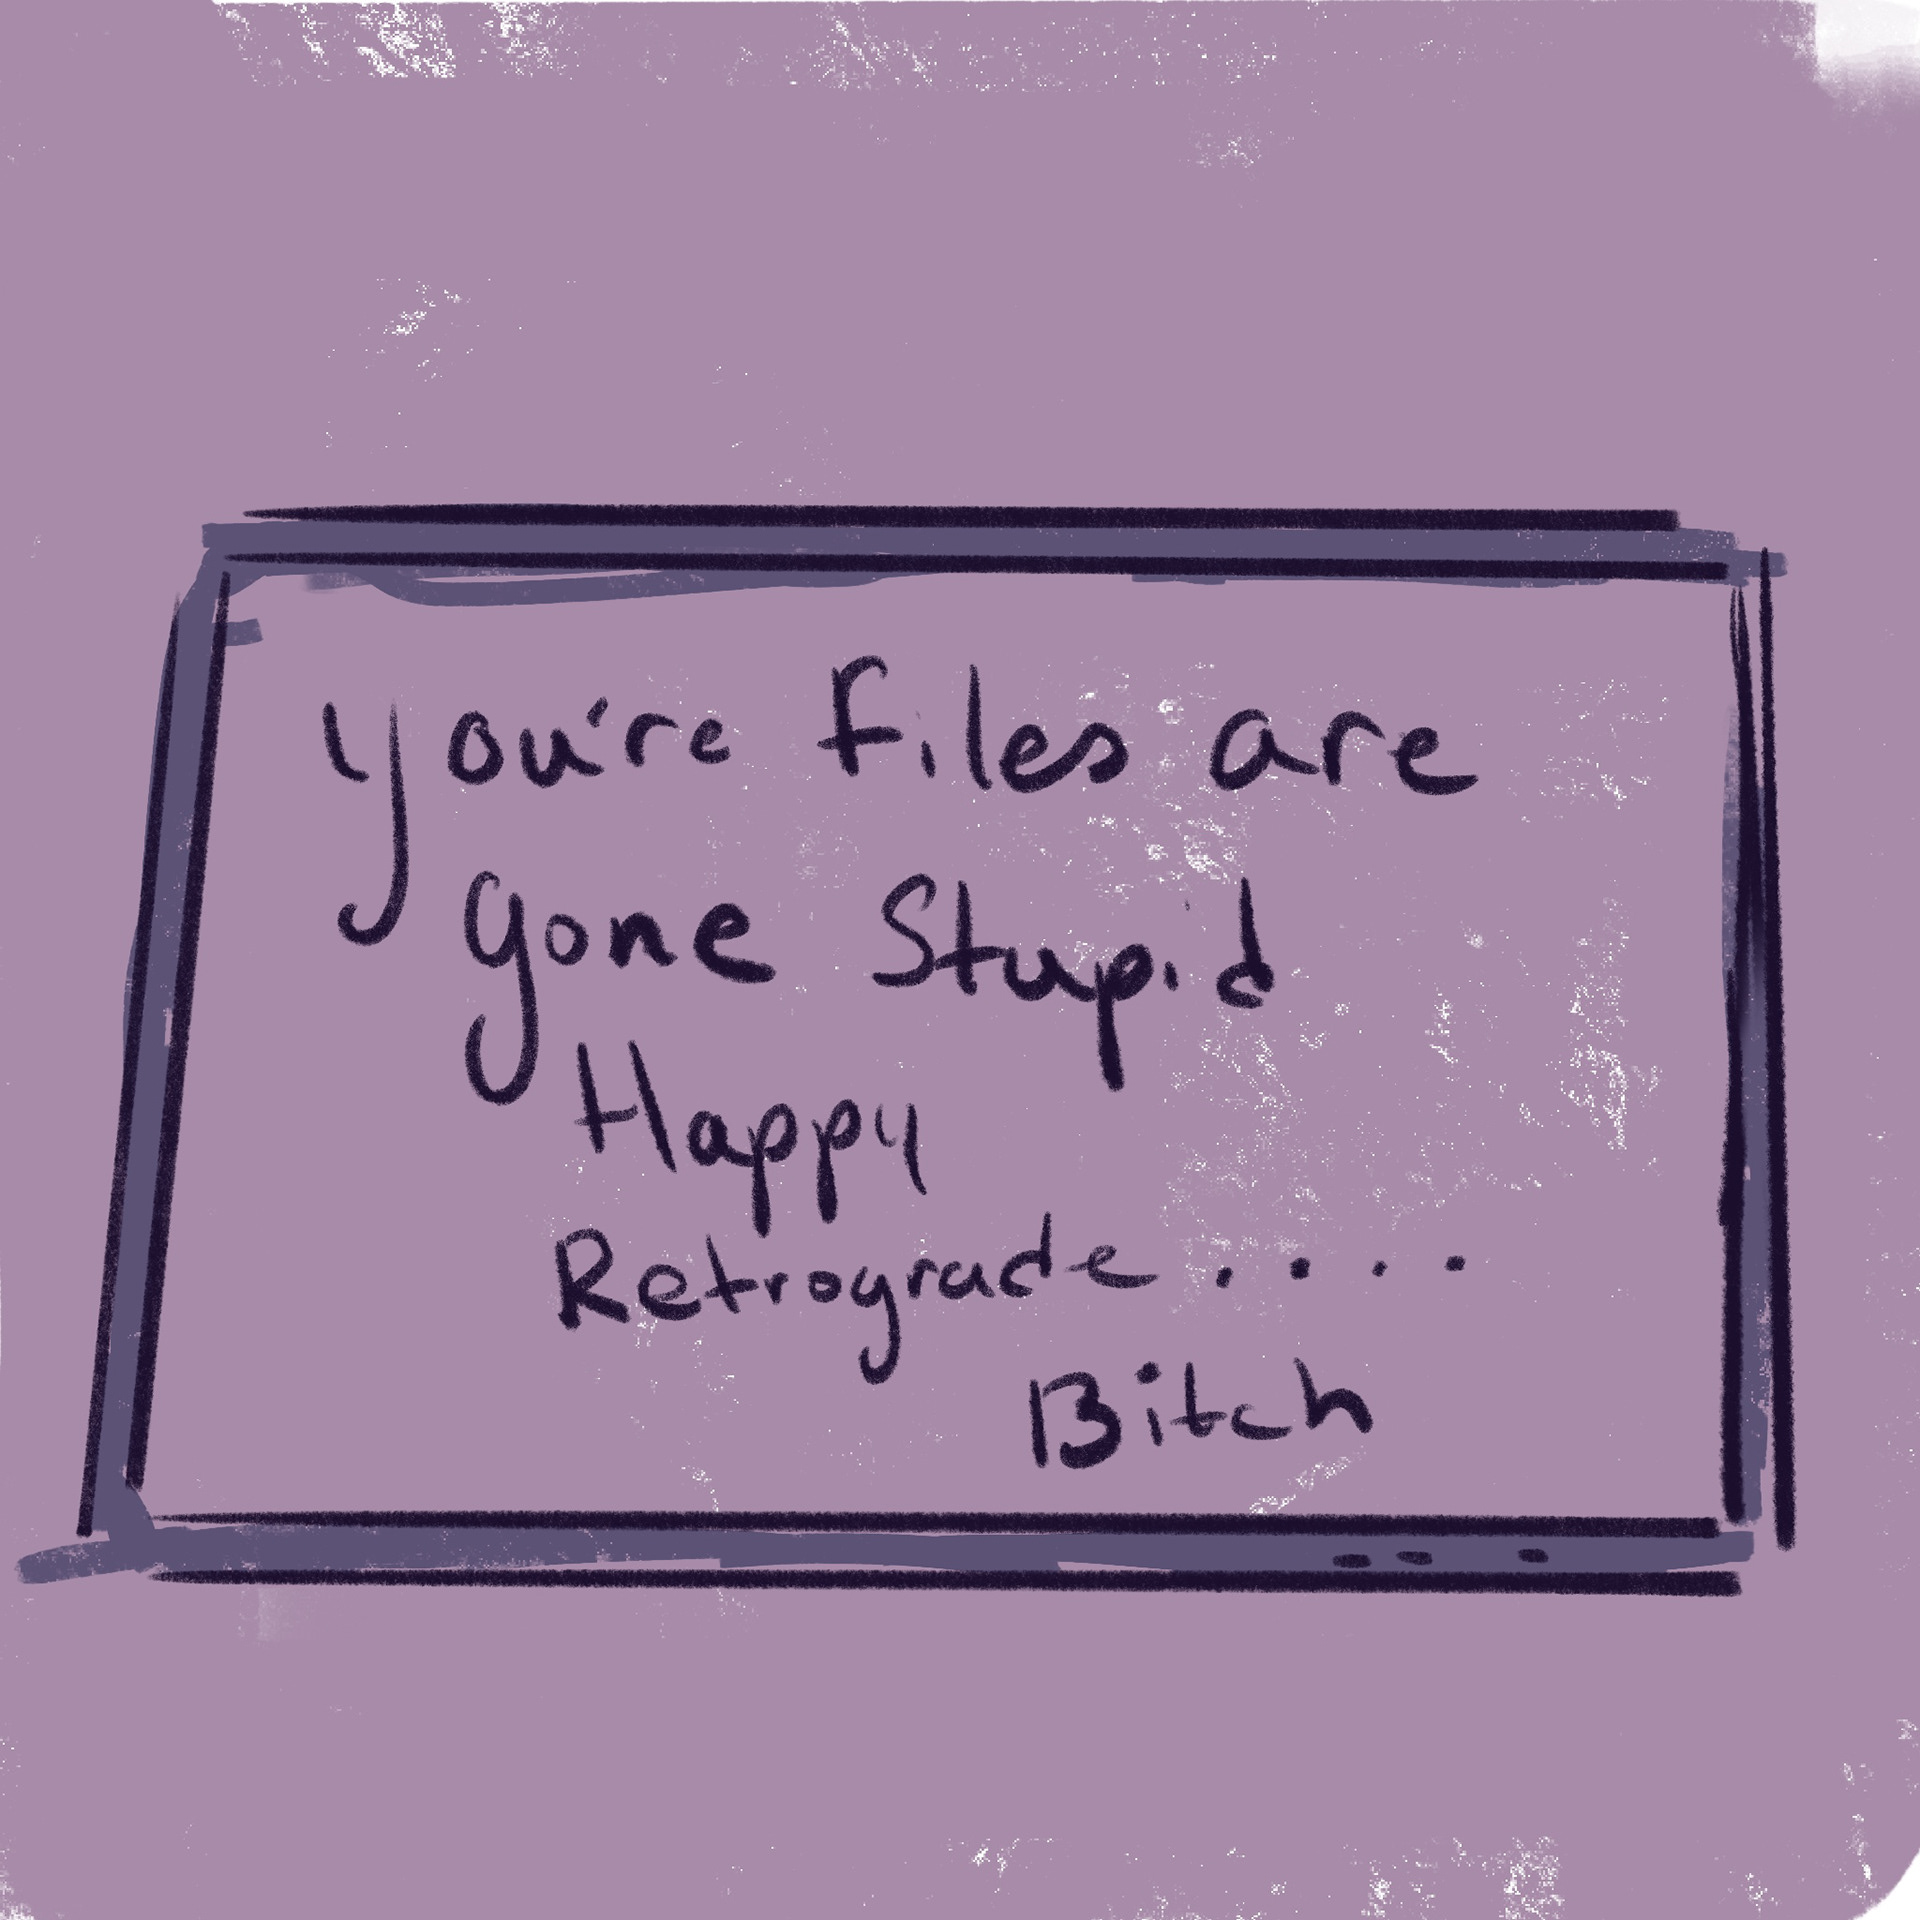 you're files are
gone Stupid
Happy
Retrograde....
Bitch